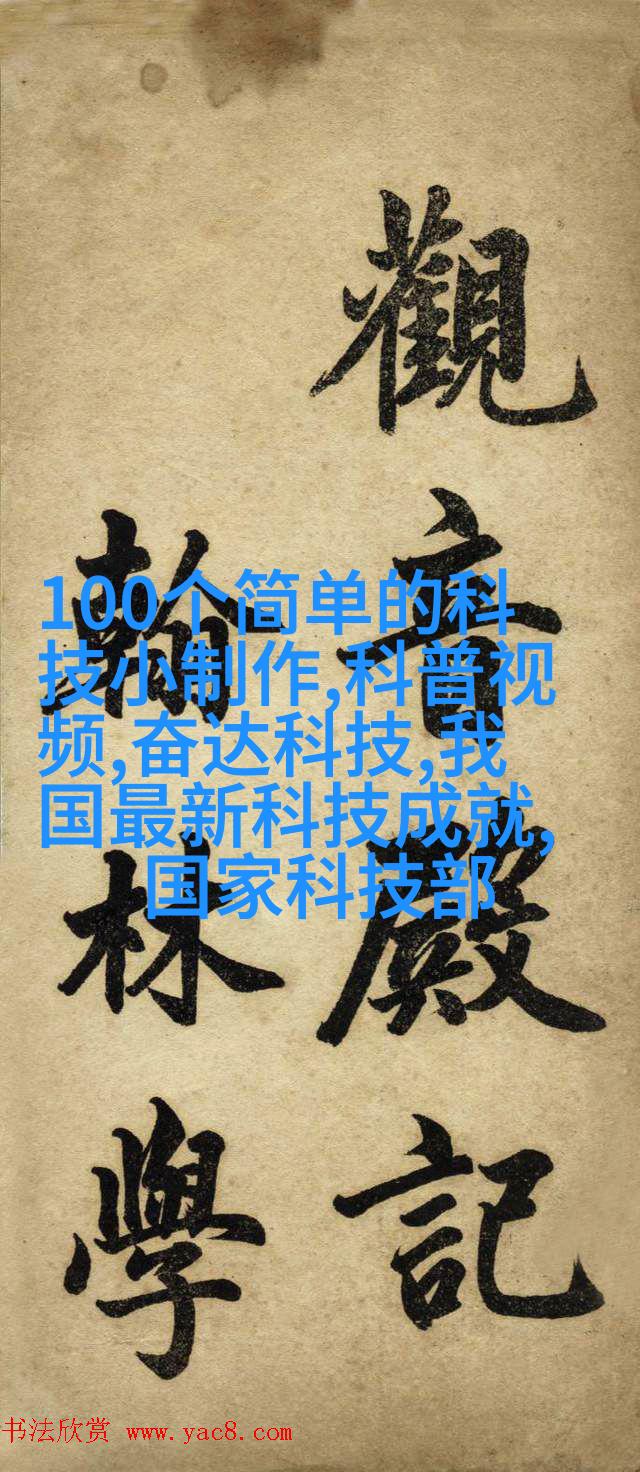 觀音殿記
翰林學
100个简单的科
技小制作,科普视
频,奋达科技,我
国最新科技成就,
国家科技部
书法欣赏 www.yac8.com